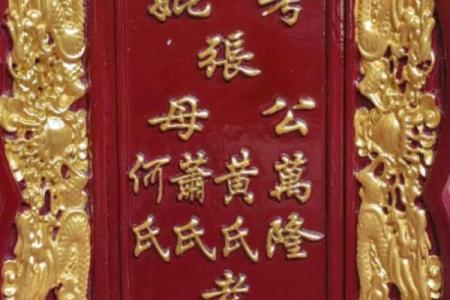 考
妣
張
公萬隆
母
黃氏
蕭氏
何氏